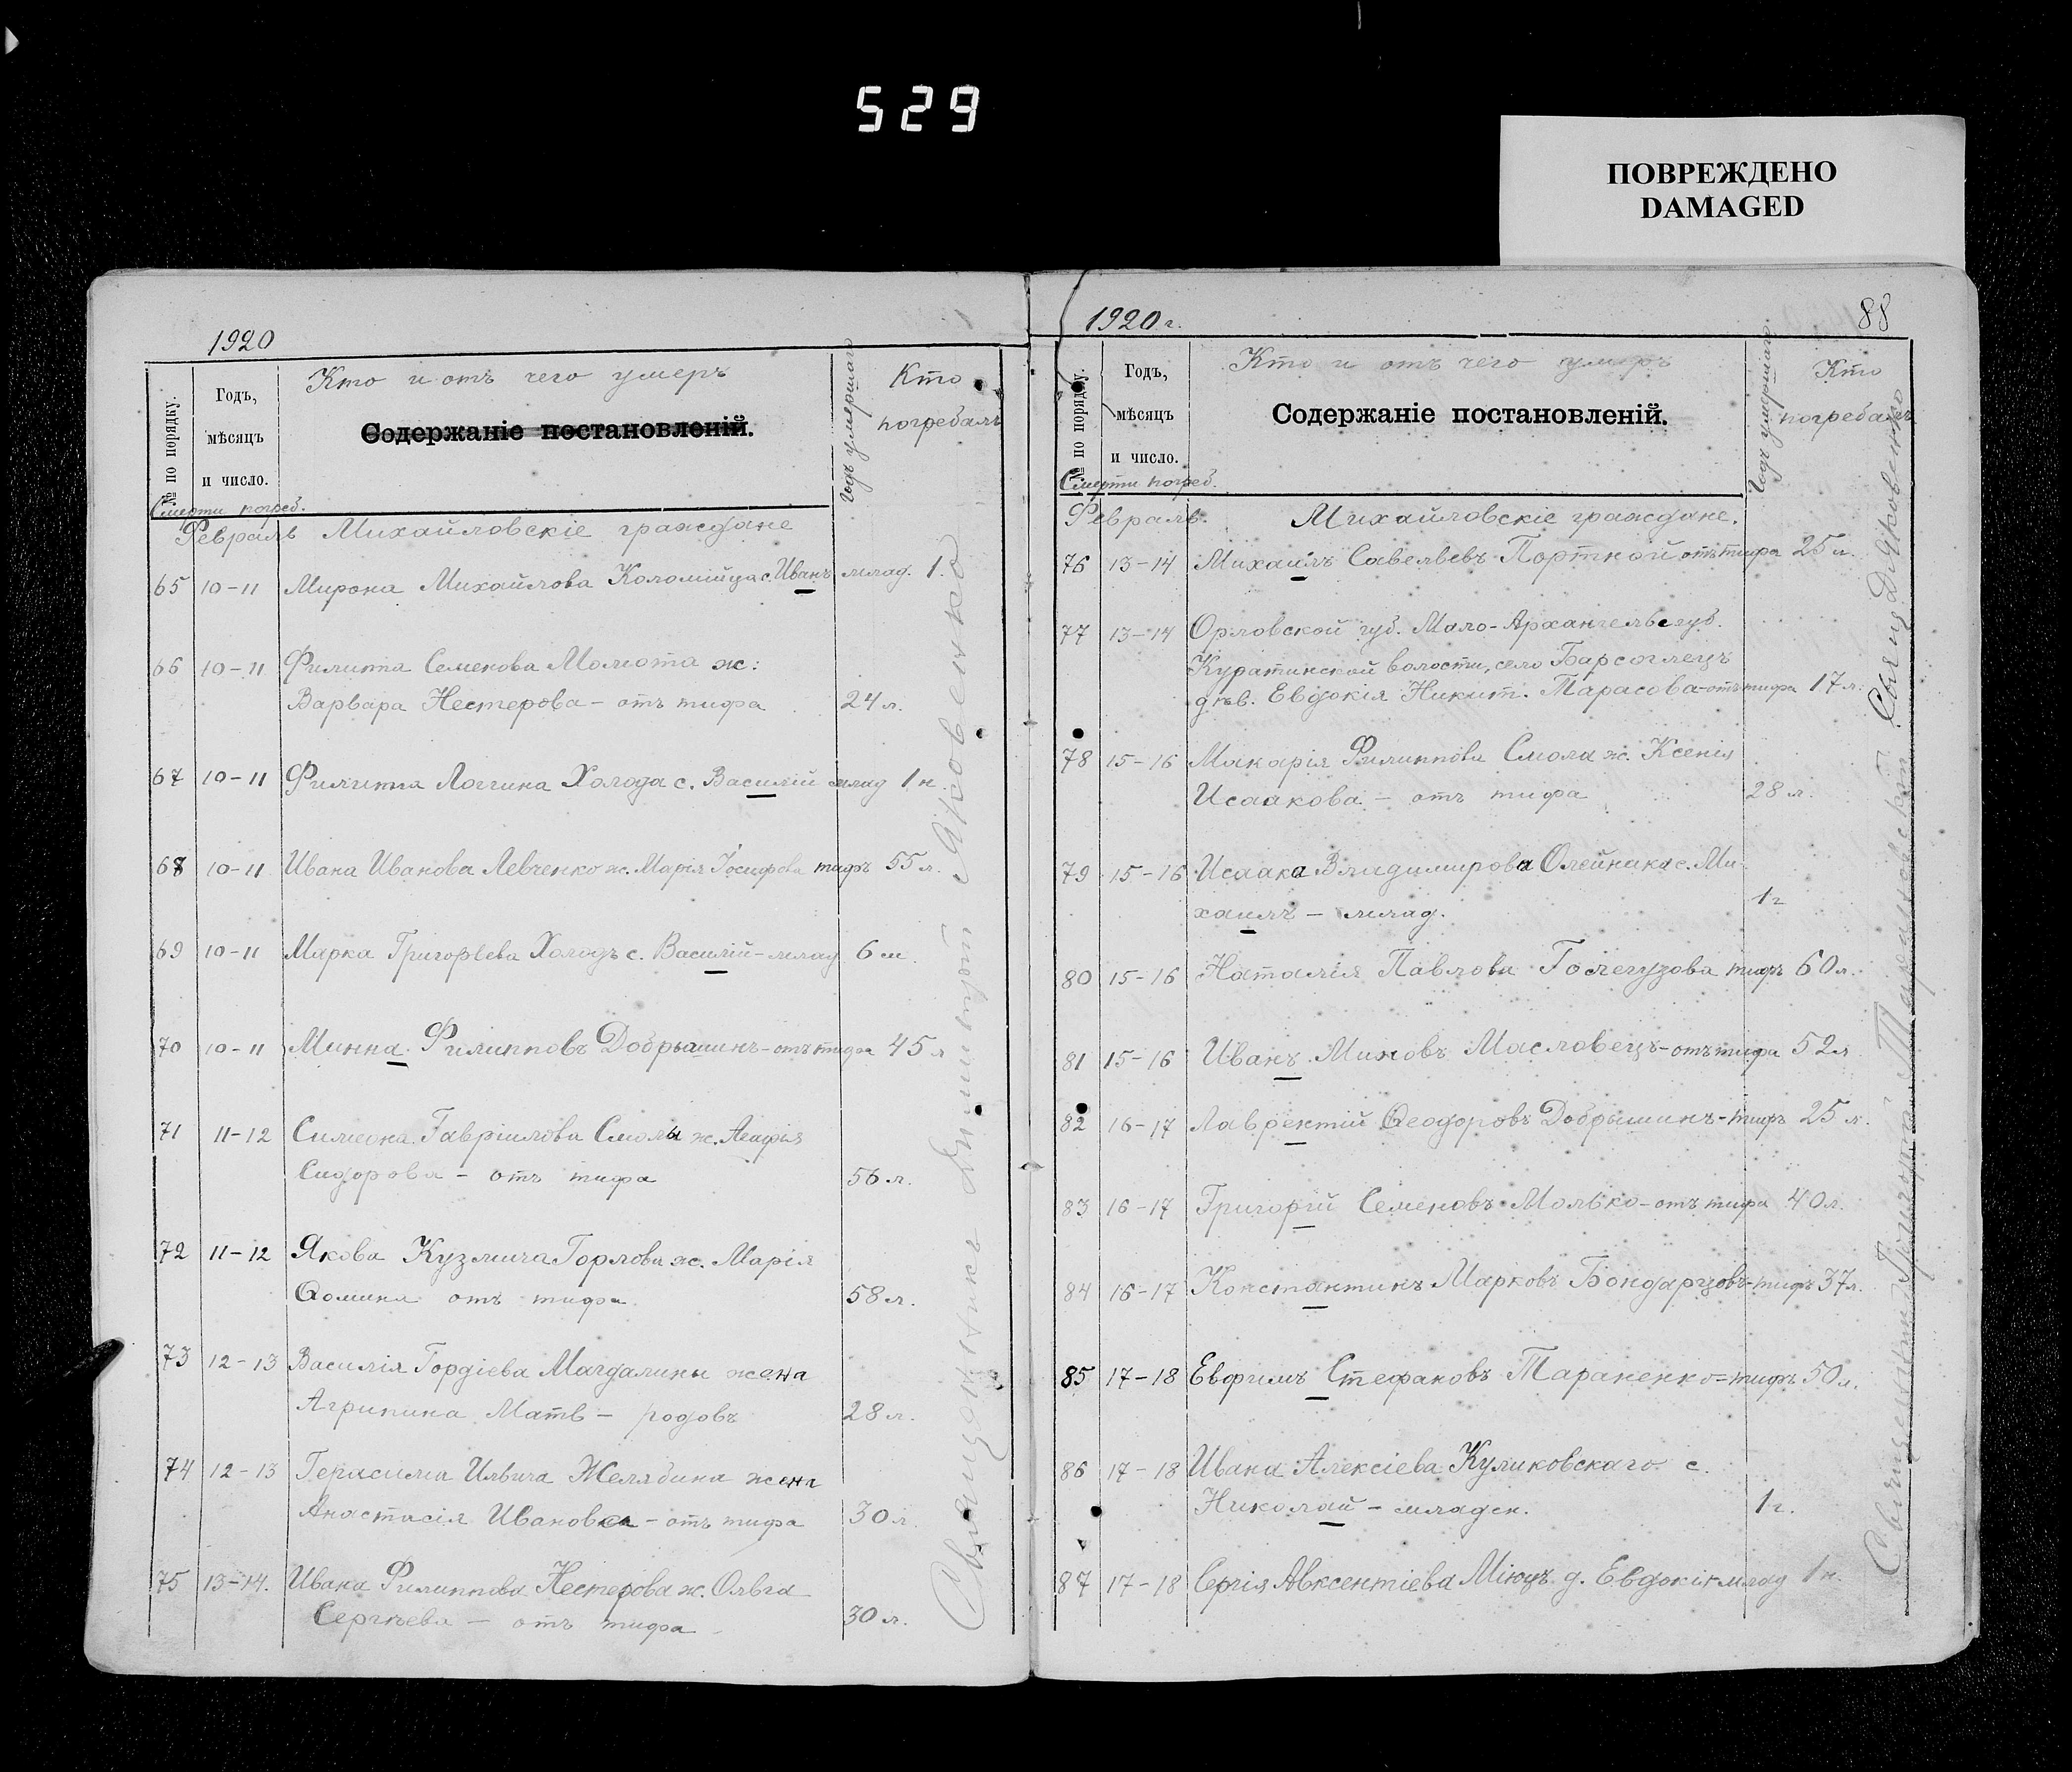 529
ПОВРЕЖДЕНО
DAMAGED
1920
№ по порядку.
Годъ,
мѣсяцъ
и число.
Смерти погреб.
Кто и отъ чего умеръ
Содержаніе постановленій.
Годъ умершаго
Кто
погребалъ
Февраль Михайловскіе граждане
65 10-11 Мирона Михайлова Коломійца с. Иванъ млад. 1.
66 10-11 Филиппа Семенова Момота ж:
Варвара Нестерова - отъ тифа 24 л.
67 10-11 Филиппа Логгина Холода с. Василій млад 1 н.
68 10-11 Ивана Иванова Левченко ж. Марія Іосифова тифъ 55 л.
69 10-11 Марка Григорьева Холодъ с. Василій - млад 6 м.
70 10-11 Минна Филипповъ Добрышинъ - отъ тифа 45 л
71 11-12 Симеона Гавріилова Смолы ж. Агафія
Сидорова - отъ тифа 56 л.
72 11-12 Якова Кузмича Горлова ж. Марія
Ѳомина отъ тифа 58 л.
73 12-13 Василія Гордіева Магдалины жена
Агрипина Матв - родовъ 28 л.
74 12-13 Герасима Ильича Желябина жена
Анастасія Иванова - отъ тифа 30 л.
75 13-14. Ивана Филиппова Нестерова ж. Ольга
Сергѣева - отъ тифа 30 л.
Священникъ Димитрій Яковенко
1920 г.
88
№ по порядку.
Годъ,
мѣсяцъ
и число.
Смерти погреб.
Кто и отъ чего умеръ
Содержаніе постановленій.
Годъ умершаго
Кто
погребалъ
Февраль. Михайловскіе граждане.
76 13-14 Михаилъ Савельевъ Портной отъ тифа 25 л.
77 13-14 Орловской губ. Мало-Архангельс
Куратинской волости, село
дѣв. Евдокія Никит. Тарасова - отъ тифа 17 л.
78 15-16 Макарія Филиппова Смола ж. Ксенія
Исаакова - отъ тифа 28 л.
79 15-16 Исаака Владимирова Олейника с. Ми-
хаилъ - млад. 1 г
80 15-16 Наталія Павлова Голегузова тифъ 60 л.
81 15-16 Иванъ Миновъ Масловецъ - отъ тифа 52 л
82 16-17 Лаврентій Ѳеодоровъ Добрышинъ - тифъ 25 л.
83 16-17 Григорій Семеновъ Молько - отъ тифа 40 л.
84 16-17 Константинъ Марковъ Бондарцовъ - тифъ 37 л.
85 17-18 Евфимъ Стефановъ Тараненко = тифъ 50 л.
86 17-18 Ивана Алексіева Куликовскаго с.
Николай - младен. 1 г.
87 17-18 Сергія Авксентіева д. Евдокія млад 1 н.
Священникъ Григорій
Свящ Д Яковенко